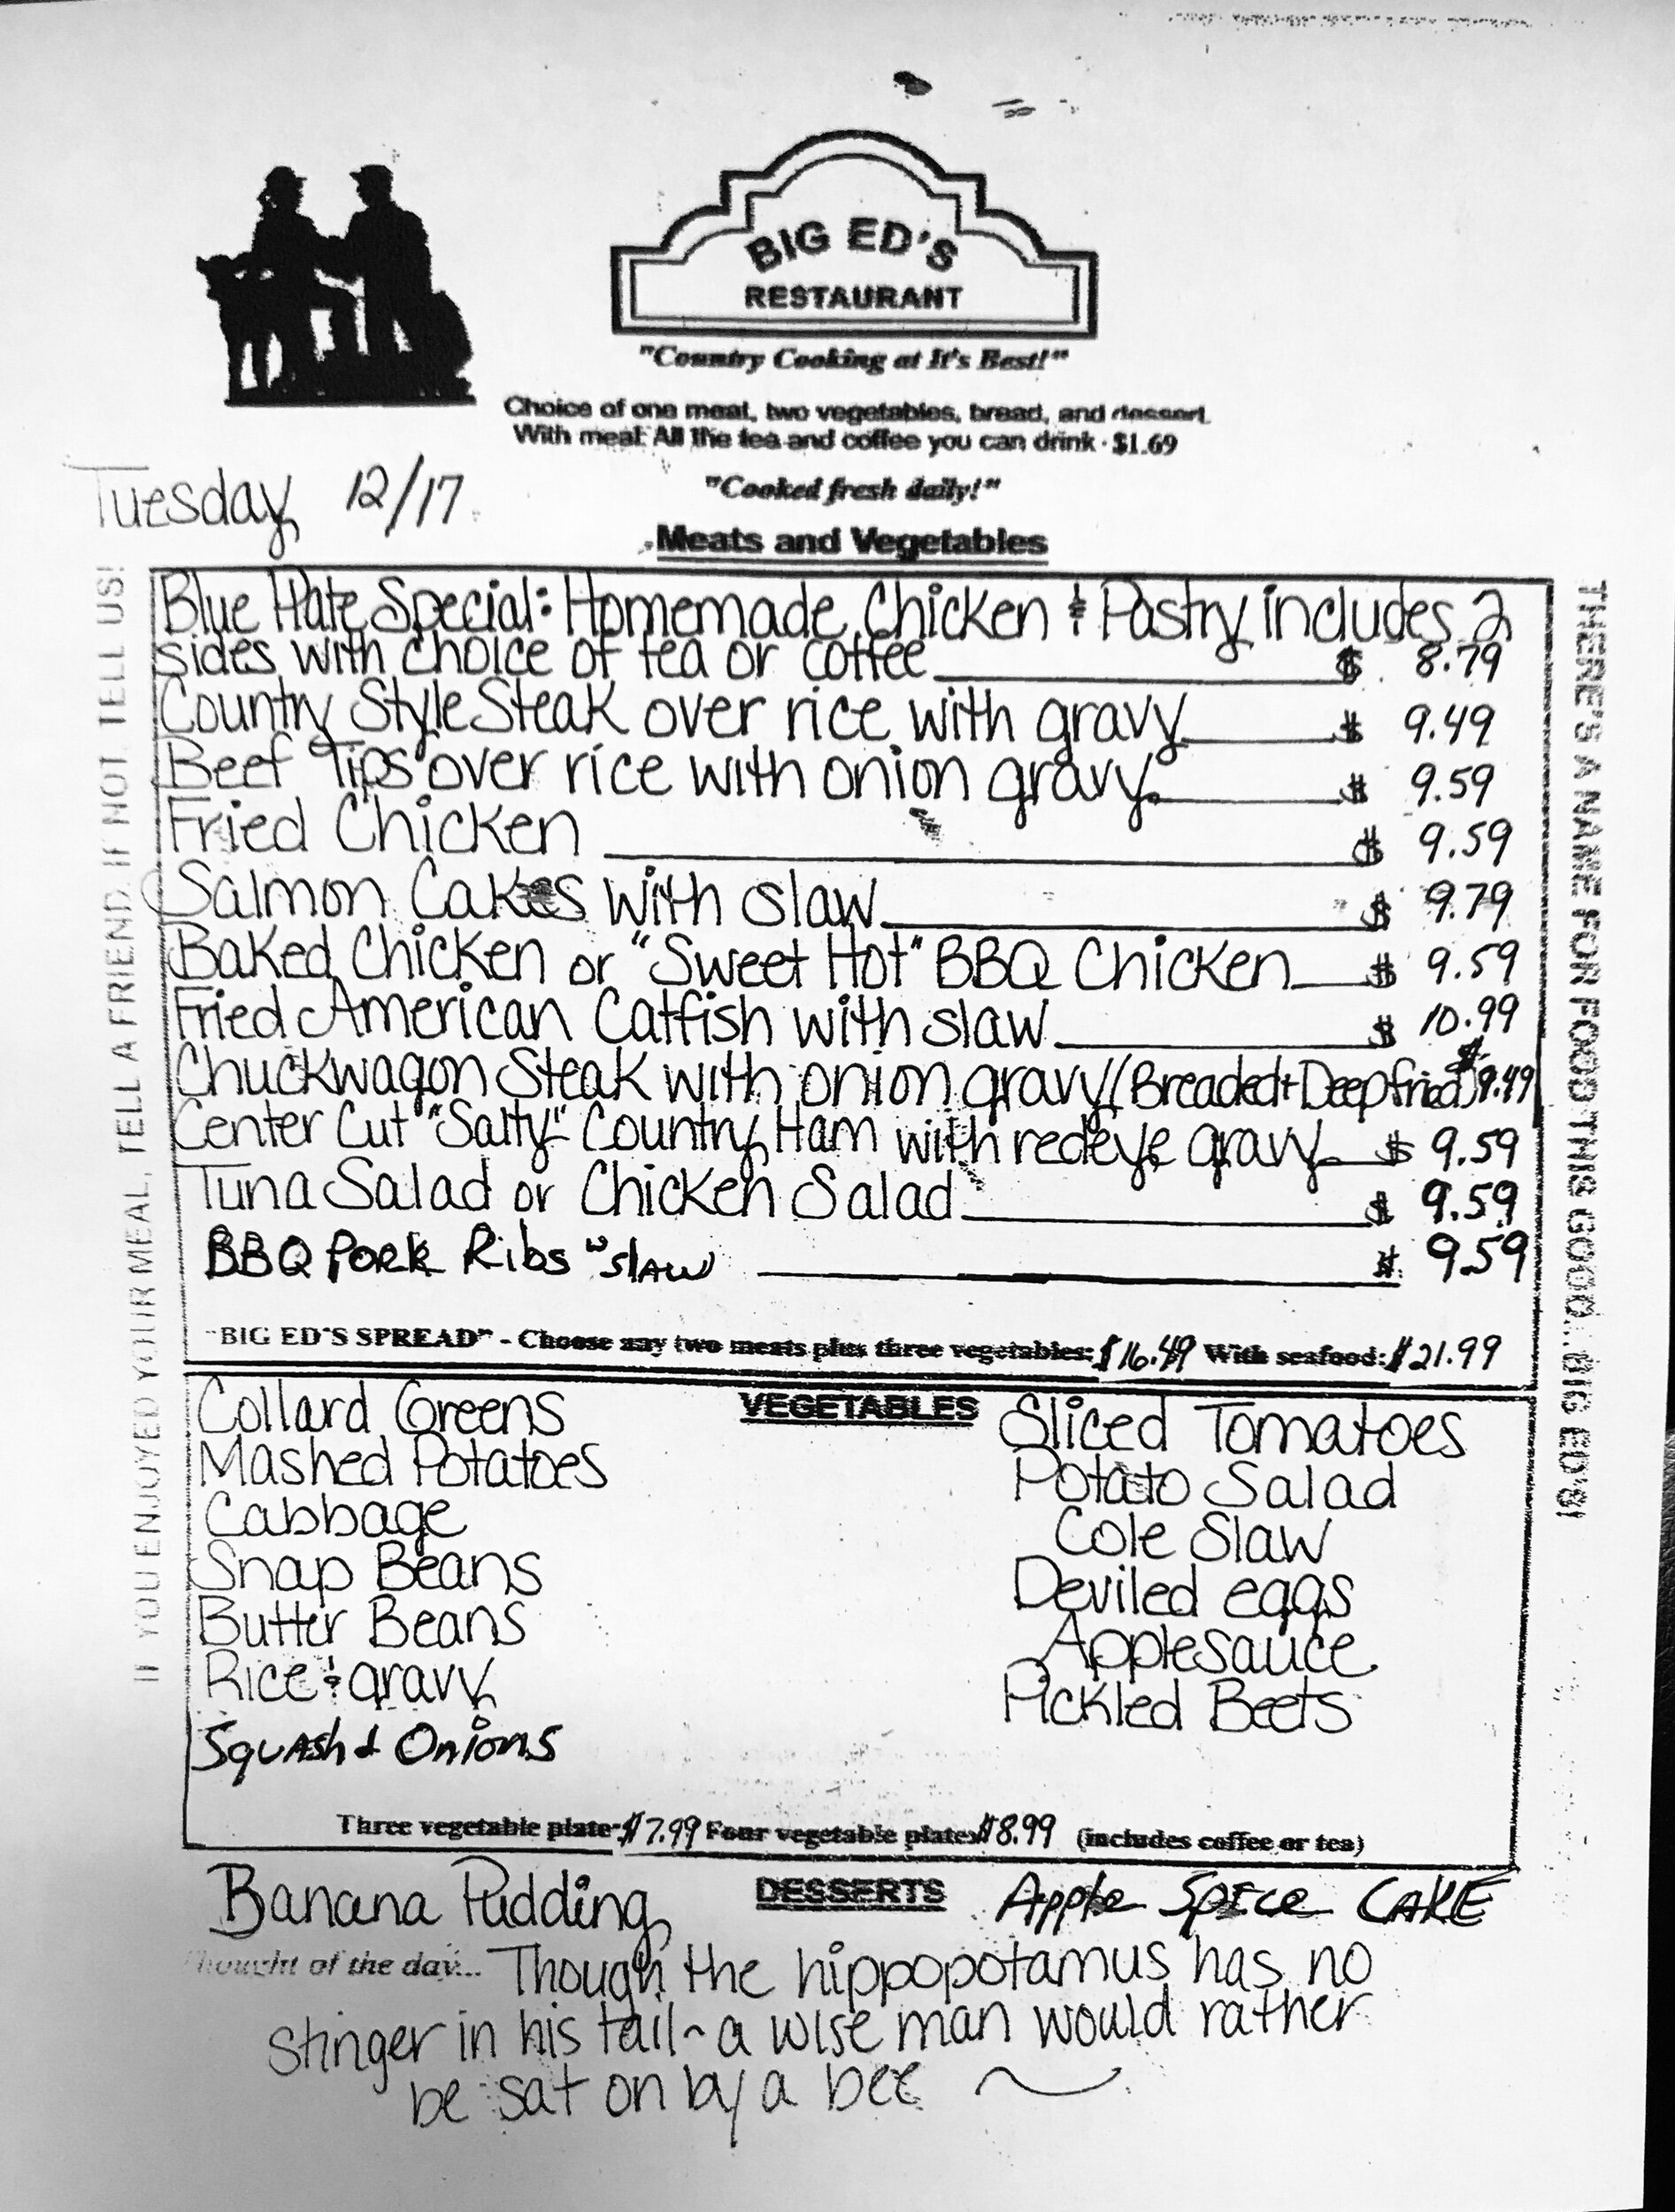 BIG ED'S
RESTAURANT
"Country Cooking at It's Best!"
Choice of one meat, two vegetables, bread, and dessert.
With meal: All the tea and coffee you can drink · $1.69
"Cooked fresh daily!"
Tuesday 12/17
Meats and Vegetables
Blue Plate Special: Homemade Chicken & Pastry includes 2
sides with choice of tea or coffee $ 8.79
Country Style Steak over rice with gravy $ 9.49
Beef Tips over rice with onion gravy $ 9.59
Fried Chicken $ 9.59
Salmon Cakes with slaw $ 9.79
Baked Chicken or "Sweet Hot" BBQ Chicken $ 9.59
Fried American Catfish with slaw $ 10.99
Chuckwagon Steak with onion gravy (Breaded + Deep fried) $9.49
Center Cut "Salty" Country Ham with redeye gravy $ 9.59
Tuna Salad or Chicken Salad $ 9.59
BBQ Pork Ribs w slaw $ 9.59
"BIG ED'S SPREAD" - Choose any two meats plus three vegetables: $16.49 With seafood: $21.99
VEGETABLES
Collard Greens
Mashed Potatoes
Cabbage
Snap Beans
Butter Beans
Rice & gravy
Squash & Onions
Sliced Tomatoes
Potato Salad
Cole Slaw
Deviled eggs
Applesauce
Pickled Beets
Three vegetable plate: $7.99 Four vegetable plate: $8.99 (includes coffee or tea)
DESSERTS
Banana Pudding
Apple Spice CAKE
Thought of the day... Though the hippopotamus has no
stinger in his tail~a wise man would rather
be sat on by a bee
IF YOU ENJOYED YOUR MEAL, TELL A FRIEND. IF NOT, TELL US!
THERE'S A NAME FOR FOOD THIS GOOD...BIG ED'S!